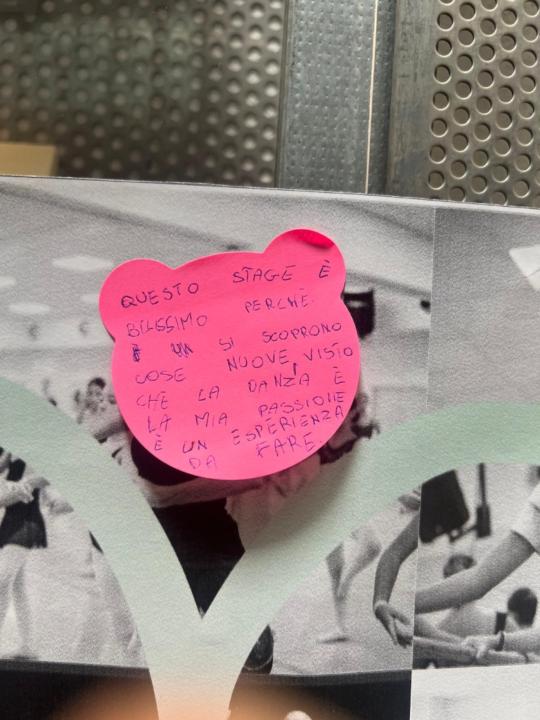 QUESTO STAGE È
BELISSIMO PERCHÈ
È UN SI SCOPRONO
COSE NUOVE, VISTO
CHE LA DANZA È
LA MIA PASSIONE
È UN ESPERIENZA
DA FARE.